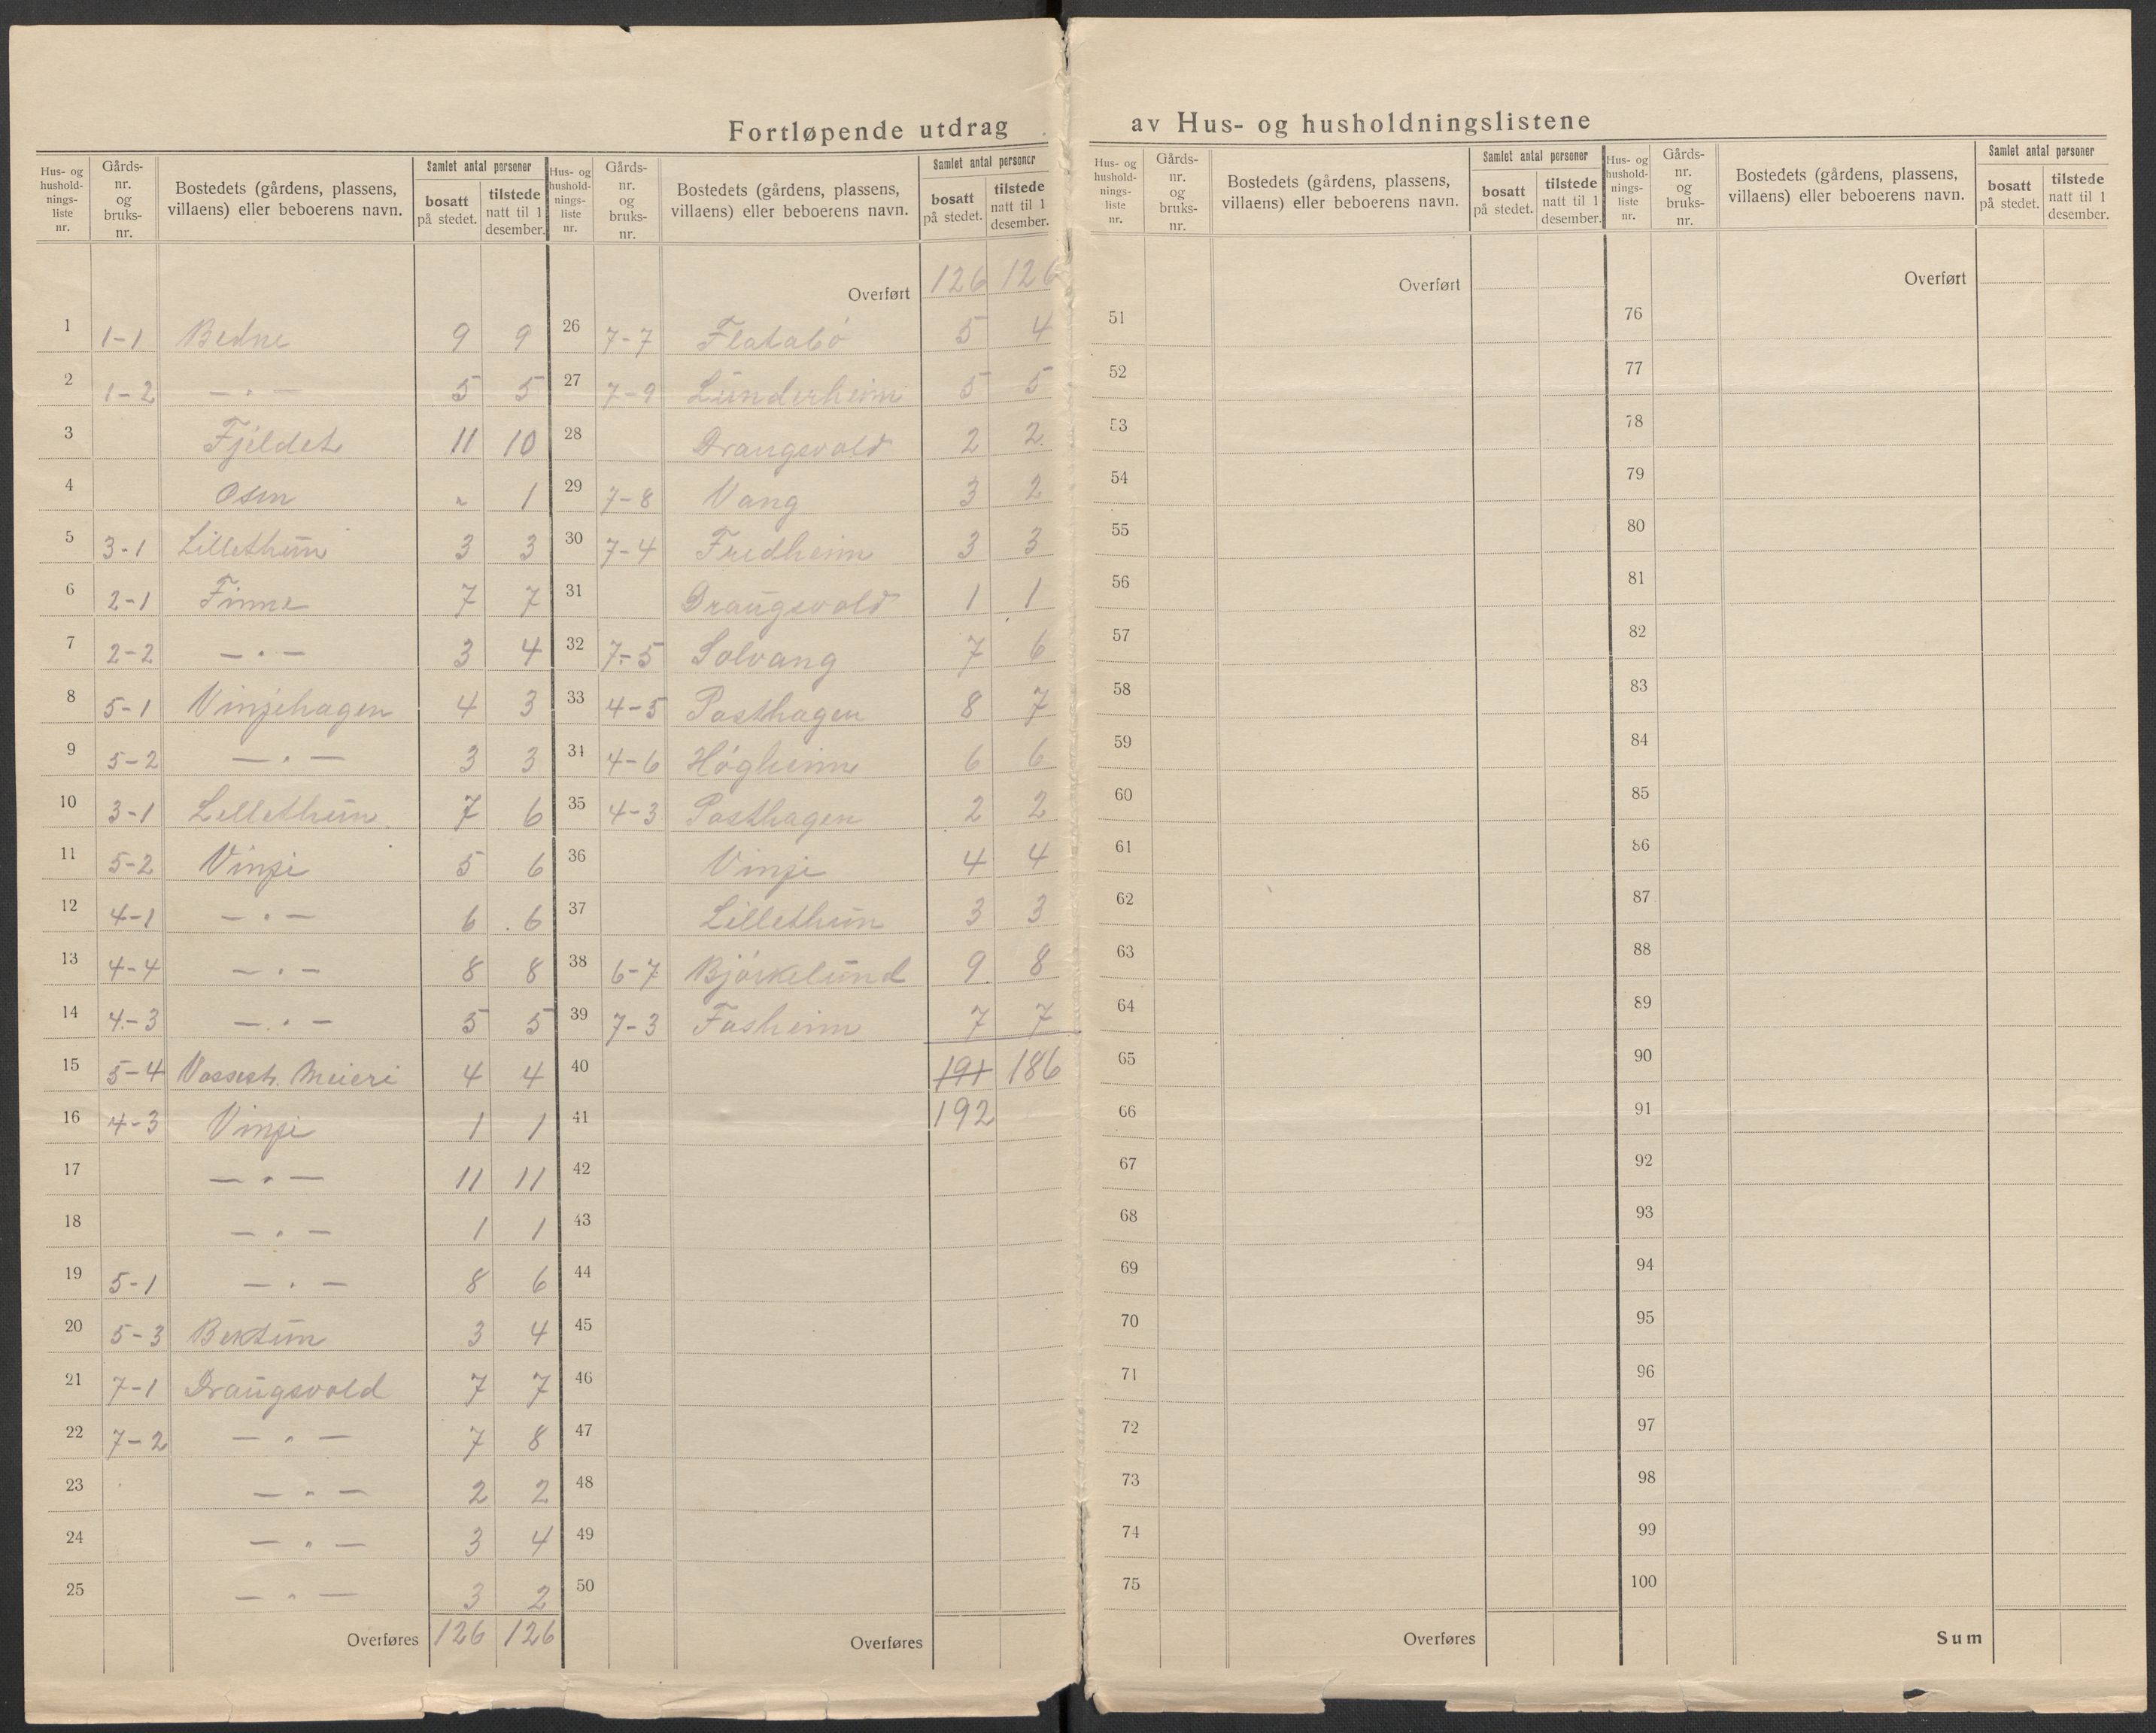 Fortløpende utdrag av Hus- og husholdningslistene
Hus- og husholdnings-liste nr. Gårds-nr. og bruks-nr. Bostedets (gårdens, plassens, villaens) eller beboerens navn. Samlet antal personer bosatt på stedet. tilstede natt til 1 desember.
1 1-1 Bedne 9 9
2 1-2 — " — 5 5
3 Fjeldet 11 10
4 Osen " 1
5 3-1 Lillethun 3 3
6 2-1 Finne 7 7
7 2-2 — " — 3 4
8 5-1 Vinjehagen 4 3
9 5-2 — " — 3 3
10 3-1 Lillethun 7 6
11 5-2 Vinje 5 6
12 4-1 — " — 6 6
13 4-4 — " — 8 8
14 4-3 — " — 5 5
15 5-4 Vossest. Meieri 4 4
16 4-3 Vinje 1 1
17 — " — 11 11
18 — " — 1 1
19 5-1 — " — 8 6
20 5-3 Bertun 3 4
21 7-1 Draugsvold 7 7
22 7-2 — " — 7 8
23 — " — 2 2
24 — " — 3 4
25 — " — 3 2
Overføres 126 126
Hus- og husholdnings-liste nr. Gårds-nr. og bruks-nr. Bostedets (gårdens, plassens, villaens) eller beboerens navn. Samlet antal personer bosatt på stedet. tilstede natt til 1 desember.
Overført 126 126
26 7-7 Flatabö 5 4
27 7-9 Lunderheim 5 5
28 Draugsvold 2 2
29 7-8 Vang 3 2
30 7-4 Fredheim 3 3
31 Draugsvold 1 1
32 7-5 Solvang 7 6
33 4-5 Posthagen 8 7
34 4-6 Högheim 6 6
35 4-3 Posthagen 2 2
36 Vinje 4 4
37 Lillethun 3 3
38 6-7 Björkelund 9 8
39 7-3 Fasheim 7 7
40 191 186
41 192
42
43
44
45
46
47
48
49
50
Overføres
Hus- og husholdnings-liste nr. Gårds-nr. og bruks-nr. Bostedets (gårdens, plassens, villaens) eller beboerens navn. Samlet antal personer bosatt på stedet. tilstede natt til 1 desember.
Overført
51
52
53
54
55
56
57
58
59
60
61
62
63
64
65
66
67
68
69
70
71
72
73
74
75
Overføres
Hus- og husholdnings-liste nr. Gårds-nr. og bruks-nr. Bostedets (gårdens, plassens, villaens) eller beboerens navn. Samlet antal personer bosatt på stedet. tilstede natt til 1 desember.
Overført
76
77
78
79
80
81
82
83
84
85
86
87
88
89
90
91
92
93
94
95
96
97
98
99
100
Sum